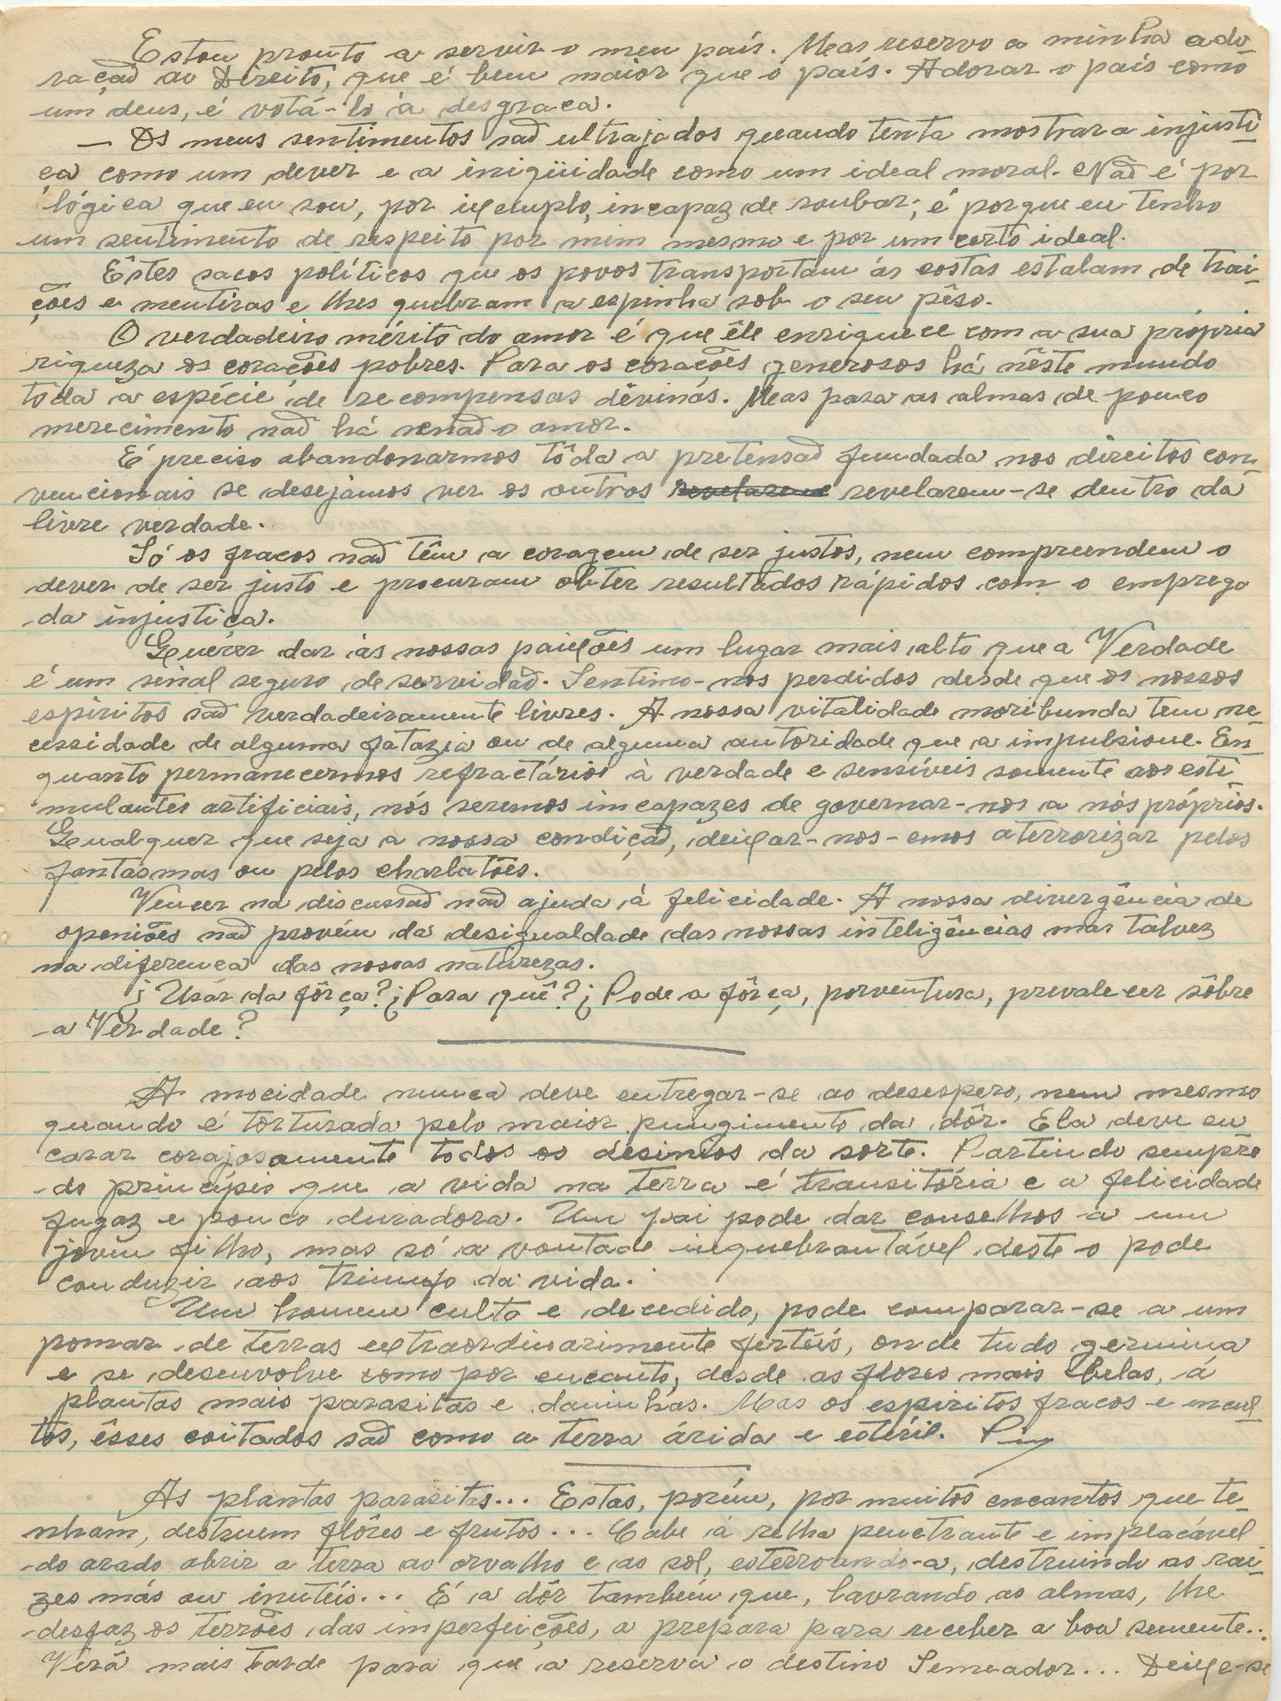 Estou pronto a servir o meu país. Mas reservo a minha ado-
ração ao Direito, que é bem maior que o país. Adorar o país como
um deus, é votá-lo à desgraça.
— Os meus sentimentos são ultrajados quando tenta mostrar a injusti-
ça como um dever e a iniqüidade como um ideal moral. Não é por
lógica que eu sou, por ixemplo, incapaz de roubar; é porque eu tenho
um sentimento de respeito por mim mesmo e por um certo ideal.
Êstes sacos políticos que os povos transportam ás costas estalam de trai-
ções e mentiras e lhes quebram a espinha sob o seu pêso.
O verdadeiro mérito do amor é que êle enriquece com a sua própria
riqueza os corações pobres. Para os corações generosos há nêste mundo
tôda a espécie de recompensas divinas. Mas para as almas de pouco
merecimento não há senão o amor.
É preciso abandonarmos tôda a pretensão fundada nos direitos con-
vencionais se desejamos ver os outros revelarem-se dentro da
livre verdade.
Só os fracos não têm a coragem de ser justos, nem compreendem o
dever de ser justo e procuram obter resultados rápidos com o emprego
da injustiça.
Querer dar ás nossas paixões um lugar mais alto que a Verdade
é um sinal seguro de servidão. Sentimo-nos perdidos desde que os nossos
espiritos são verdadeiramente livres. A nossa vitalidade moribunda tem ne-
cessidade de alguma fatazia ou de alguma autoridade que a impulsione. En-
quanto permanecermos refractários à verdade e sensíveis somente aos esti-
mulantes artificiais, nós seremos incapazes de governar-nos a nós próprios.
Qualquer que seja a nossa condição, deixar-nos-emos aterrorizar pelos
fantasmas ou pelos charlatões.
Vencer na discussão não ajuda á felicidade. A nossa divergência de
openiões não provém da desigualdade das nossas inteligências mas talvez
na diferença das nossas naturezas.
¿Usar da fôrça? ¿Para quê? ¿Pode a fôrça, porventura, prevalecer sôbre
a Verdade?
A mocidade nunca deve entregar-se ao desespero, nem mesmo
quando é torturada pelo maior pungimento da dôr. Ela deve en
carar corajosamente todos os desinios da sorte. Partindo sempre
do princípio que a vida na terra é transitória e a felicidade
fugaz e pouco duradora. Um pai pode dar conselhos a um
jovem filho, mas só a vontade inquebrantável deste o pode
conduzir aos triunfo da vida.
Um homem culto e decedido, pode comparar-se a um
pomar de terras extraordinariamente fertéis, onde tudo germina
e se desenvolve como por encanto, desde as flores mais belas, á
plantas mais parasitas e daninhas. Mas os espiritos fracos e incul-
tos, êsses coitados são como a terra árida e estéril.
As plantas parasitas... Estas, porém, por muitos encantos que te-
nham, destruem flôres e frutos... Cabe á relha penetrante e implacável
do arado abrir a terra ao orvalho e ao sol, esterroando-a, destruindo as raí-
zes más ou inutéis... É a dôr também que, lavrando as almas, lhe
desfaz os terrões das imperfeições, a prepara para receber a boa semente...
Virá mais tarde para que a reserva o destino Semeador... Deixe-se